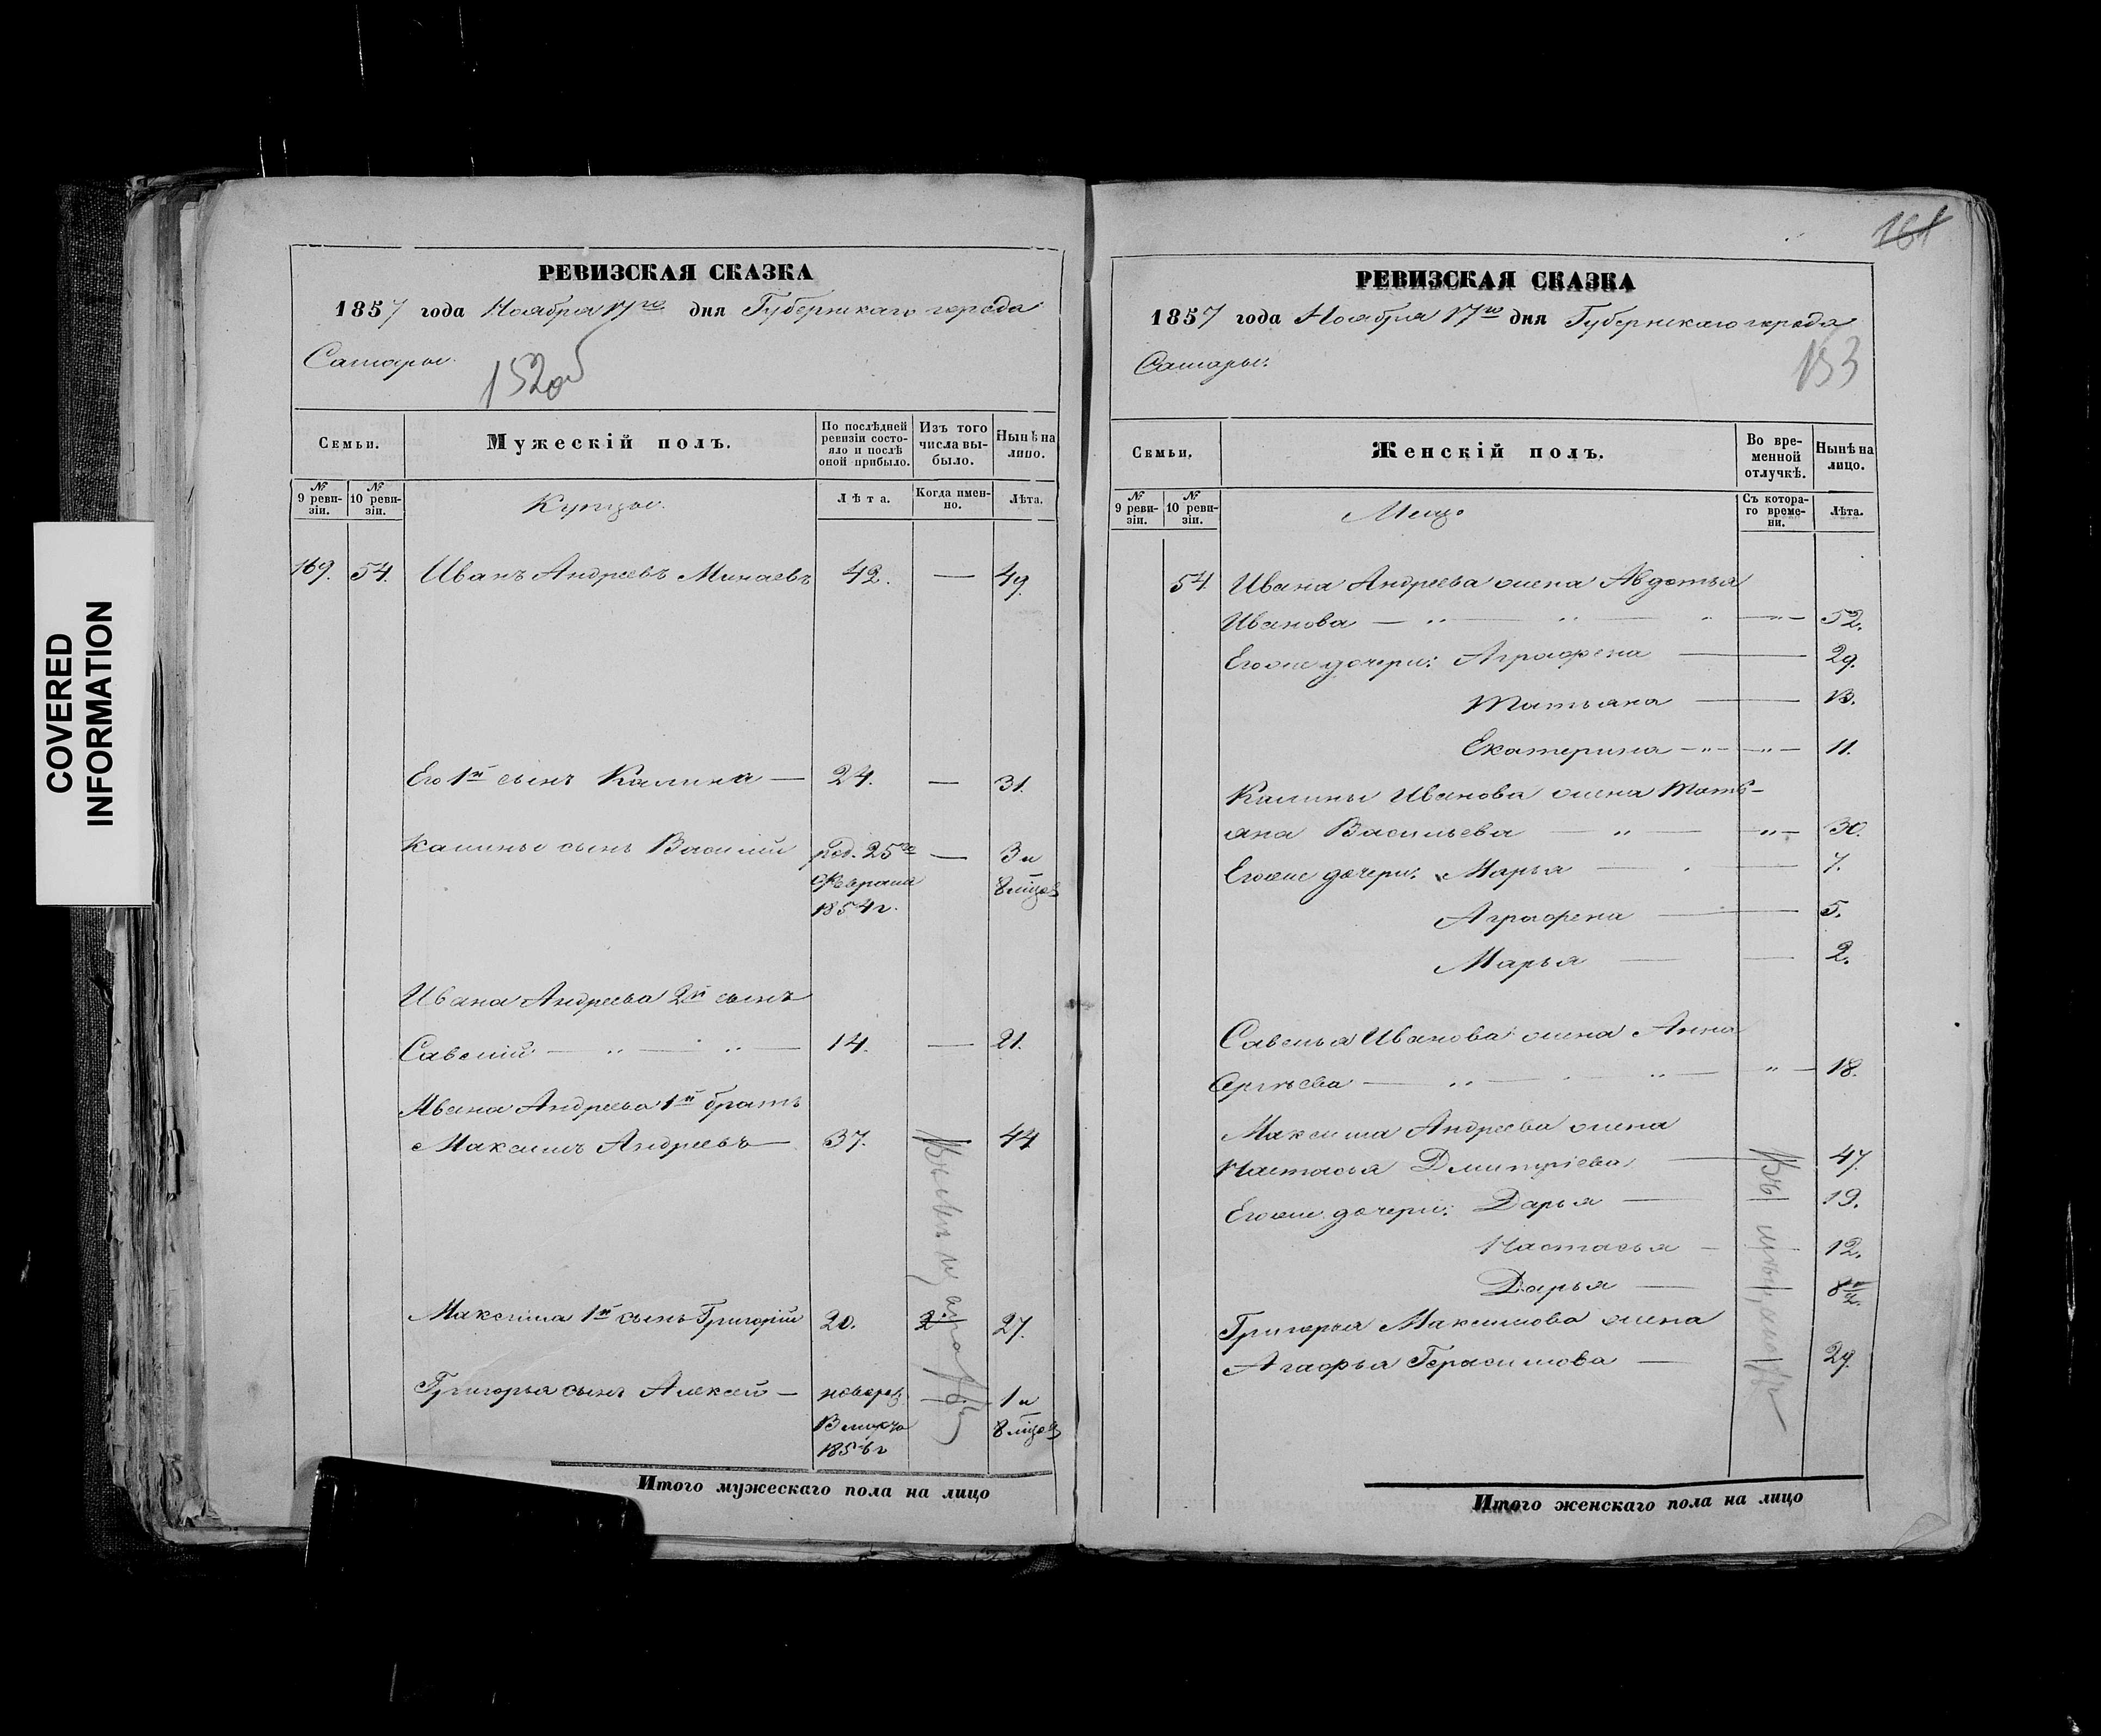 COVERED
INFORMATION
РЕВИЗСКАЯ СКАЗКА
1857 года Ноября 17го дня Губернскаго города
Самары.
152об
Семьи.
Мужескій полъ.
По послѣдней ревизіи состояло и послѣ оной прибыло.
Изъ того числа выбыло.
Нынѣ на лицо.
№ 9 ревизіи.
№ 10 ревизіи.
Купцы.
Лѣта.
Когда именно.
Лѣта.
169. 54. Иванъ Андреевъ Минаевъ 42. — 49.
Его 1й сынъ Калина — 24. — 31.
Калины сынъ Василій род. 25го — 3 и
Февраля 8 мѣцов
1854 г.
Ивана Андреева 2й сынъ
Савелій — 14. — 21.
Ивана Андреева 1й братъ
Максимъ Андреевъ — 37. — 44
Максима 1й сынъ Григорій 20. 27.
Григорья сынъ Алексей — новорож. 1 и
В марта 8 мѣцов
1856 г
Итого мужескаго пола на лицо
161
РЕВИЗСКАЯ СКАЗКА
1857 года Ноября 17го дня Губернскаго города
Самары.
153
Семьи.
Женскій полъ.
Во временной отлучкѣ.
Нынѣ на лицо.
№ 9 ревизіи.
№ 10 ревизіи.
Съ котораго времени.
Лѣта.
54. Ивана Андреева жена Авдотья
Иванова — 52.
Егоже дочери: Аграфена — 29.
Татьяна — 13.
Екатерина — 11.
Калины Иванова жена Тать-
яна Васильева — 30.
Егоже дочери: Марья — 7.
Аграфена — 5.
Марья — 2.
Савелья Иванова жена Анна
18.
Максима Андреева жена
Настасья Дмитріева — 47.
Егоже дочери: Дарья — 19.
Настасья — 12.
Дарья — 8 1/2.
Григорья Максимова жена
Агафья Герасимова — 29.
Итого женскаго пола на лицо